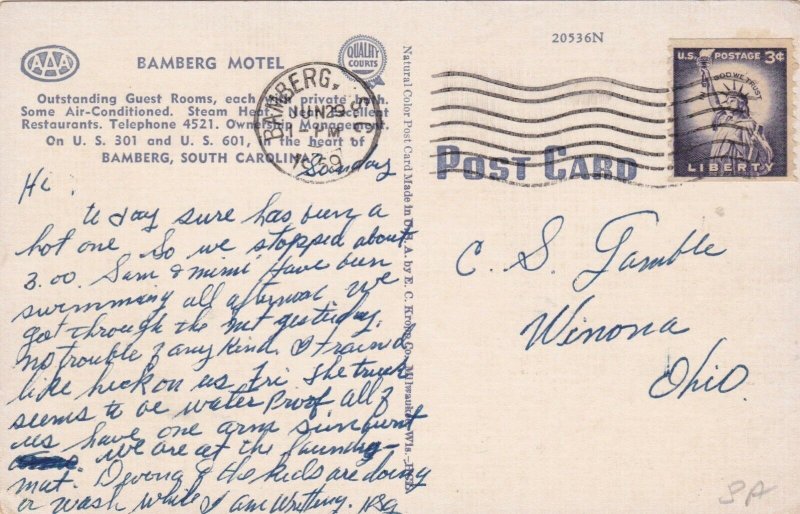 AAA
BAMBERG MOTEL
QUALITY COURTS
Outstanding Guest Rooms, each private
Some Air-Conditioned. Steam Heat. Near Excellent
Restaurants. Telephone 4521. Ownership Management.
On U. S. 301 and U. S. 601, in the heart of
BAMBERG, SOUTH CAROLINA
BAMBERG, S.C.
JUN 29
PM
1959
Sunday
Hi,
to day sure has been a
hot one So we stopped about
3.00. Sam & mimi Have been
swimming all afternoon. We
got through the mt yesterday.
no trouble of any kind. It rained
like heck on us Fri. The truck
seems to be water Proof all of
us have one arm sunburnt
we are at the laundry-
mat. & the kids are doing
a wash while I am Writing.
Natural Color Post Card Made in U. S. A. by E. C. Kropp Co., Milwaukee, Wis.
20536N
POST CARD
U.S. POSTAGE 3¢
IN GOD WE TRUST
LIBERTY
C. S. Tamble
Winona
Ohio.